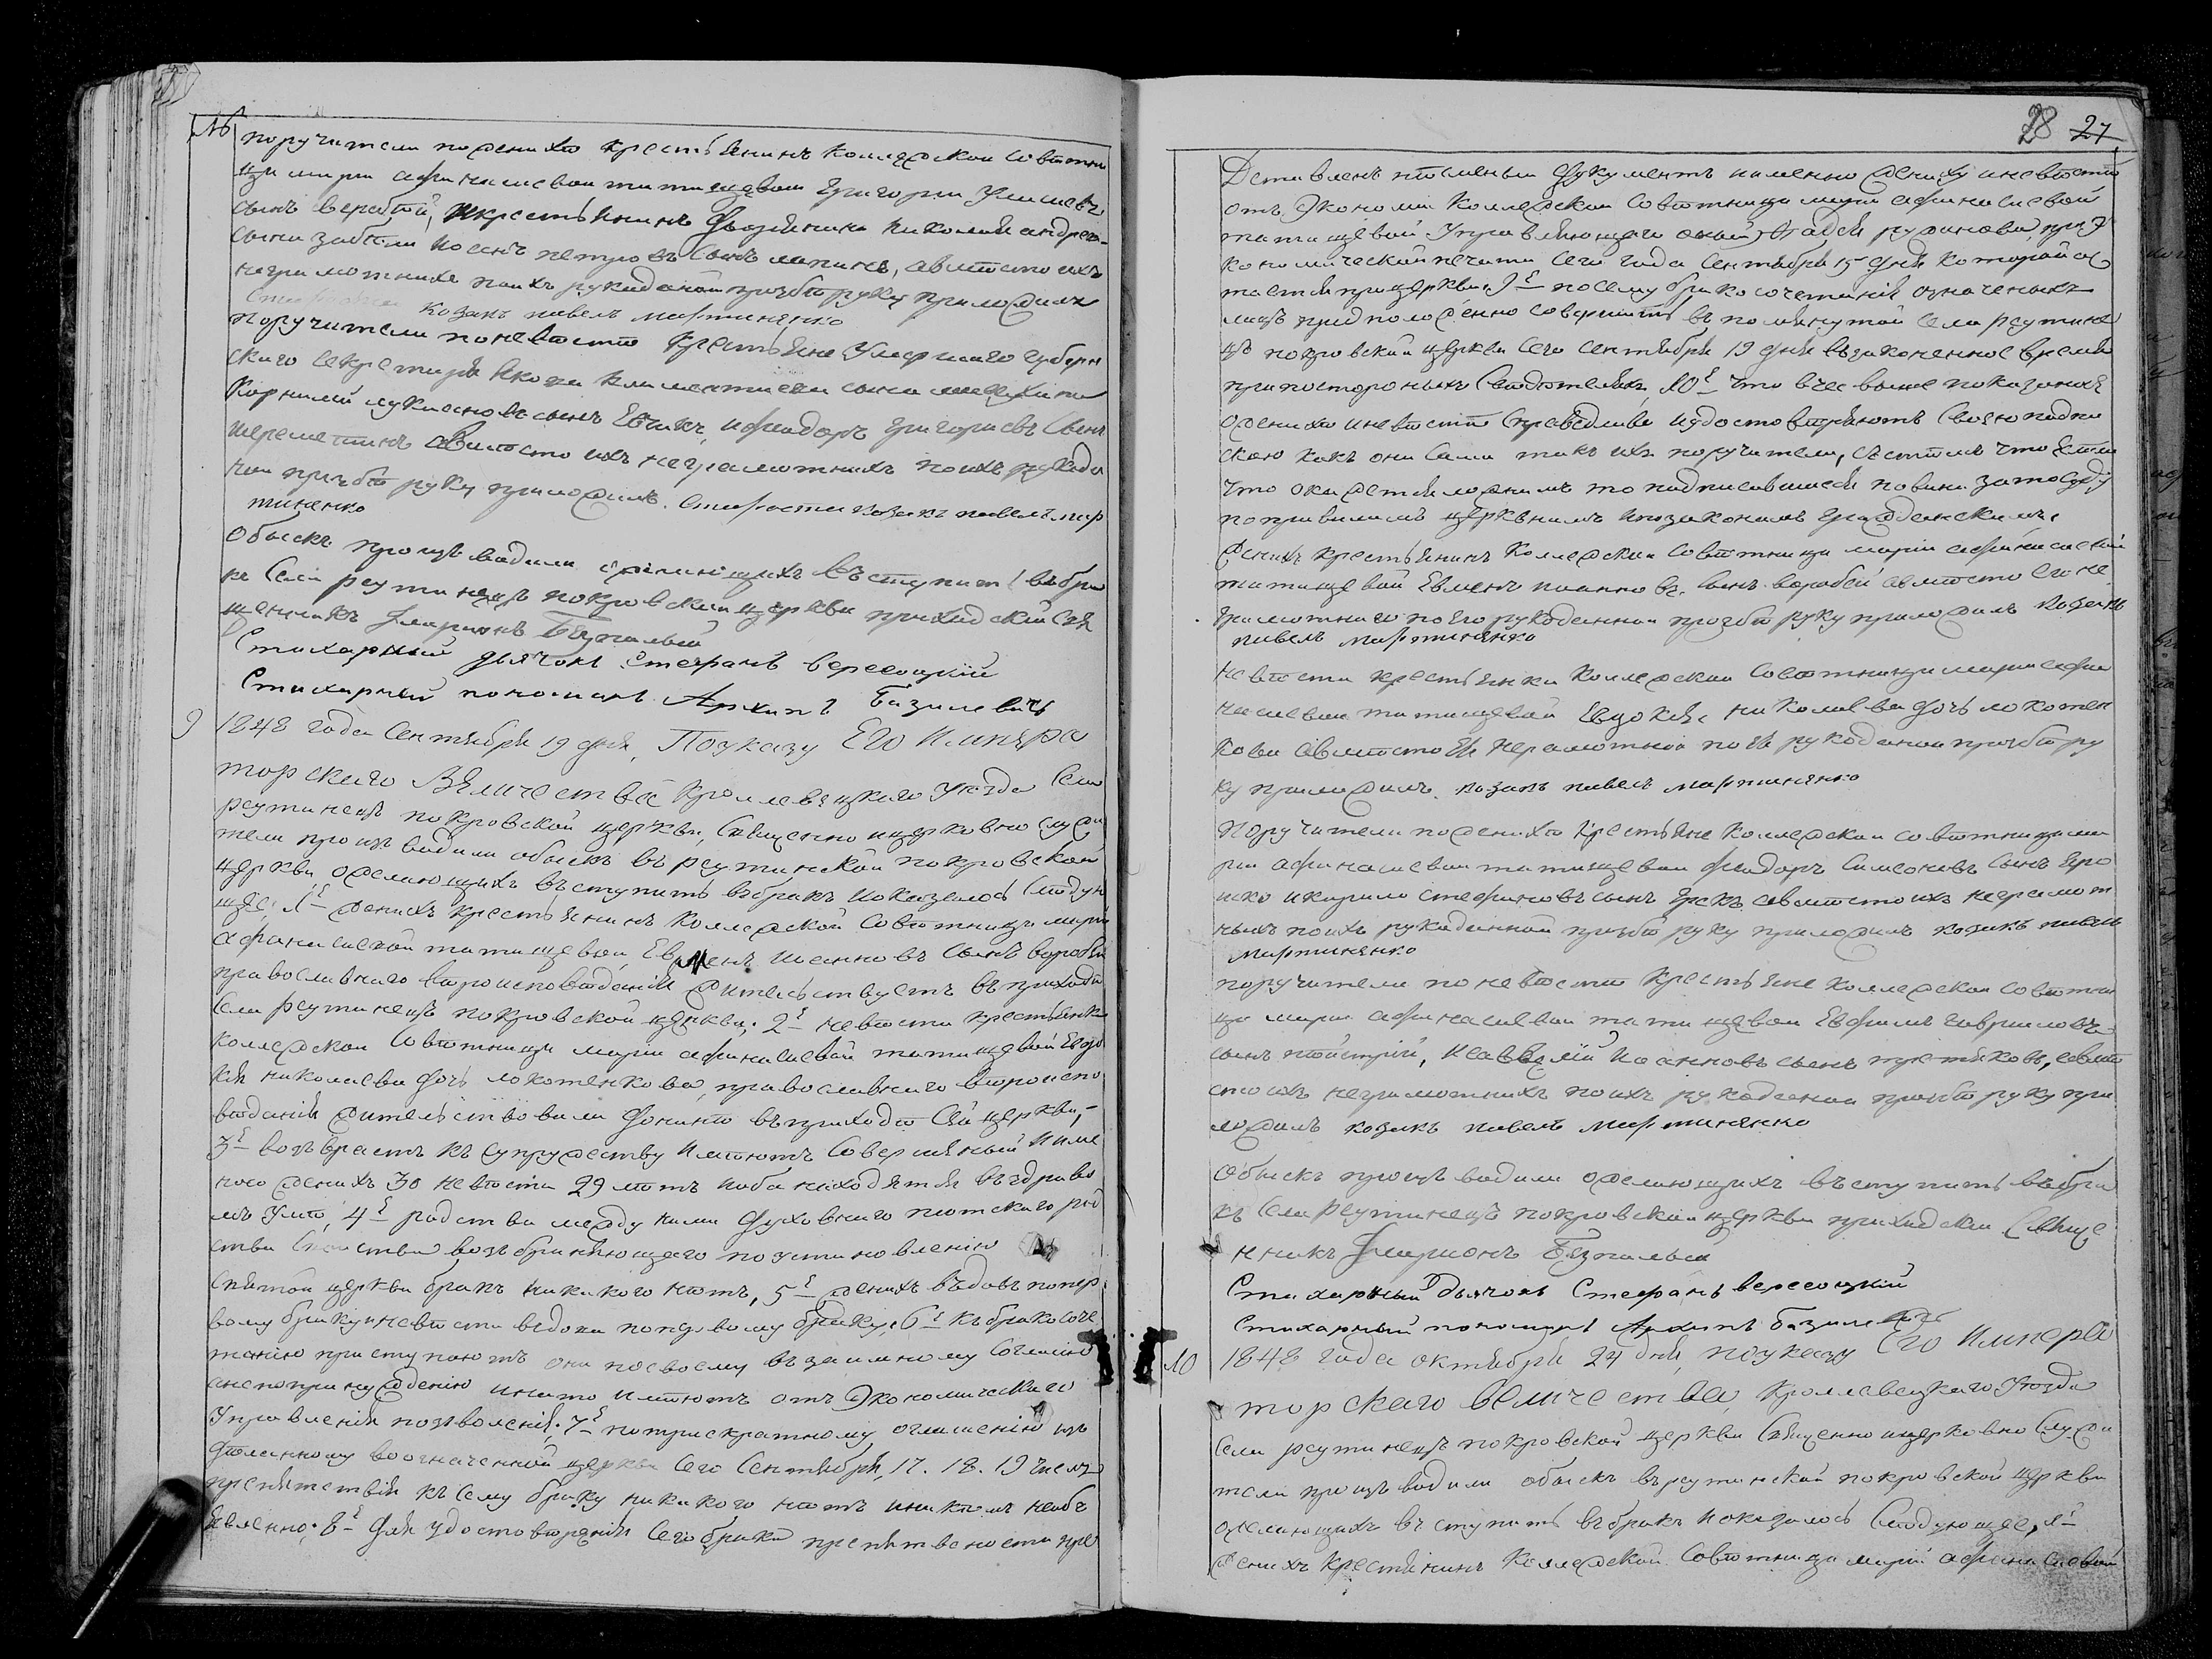 №
поручители по женихѣ крестьянинъ коллежскои совѣтни
цы маріи афанасиевои татищевои Григории
сынъ веребѣй, икрестьянинъ дворянина николая андреева
сына забѣли иосипъ петровъ сынъ лапинъ, авмѣсто ихъ
неграмотнихъ поихъ рукоданой прозбѣ руку приложилъ
козакъ павелъ мартиненко
поручители поневѣстѣ крестьяне умершаго губерн
скаго секретаря якова климентиева сына
корнилий лукиановъ сынъ Евчикъ, ифиодоръ григориевъ сынъ
шереметинъ авмѣсто ихъ неграмотнихъ поихъ рукода
нои прозбѣ руку приложилъ. Старости козакъ павелъ мар
тиненко
Обыскъ произъводили желающихъ въступить вьбра
къ Села реутинецъ покровскои церкви приходский свя
щенникъ Иларионъ Безпалый
Стихарный дьячокъ Стефанъ вересоцкий
Стихарный пономарь Архипъ Базилевичъ
9 1848 года Сентября 19 дня, Поуказу Его Импера
торскаго Величества Кролевецкаго уѣзда Села
реутинецъ покровской церкви, Священно ицерковно служи
тели произъводили обыскъ въреутинской покровской
церкви желающихъ въступить въбракъ иоказалось слѣдую
щее; 1е женихъ крестьянинъ коллежской совѣтници маріи
афанасиевой татищевой, Евменъ иоанновъ сынъ воробей
православнаго вѣроисповѣданія жительствуетъ въприходѣ
Села реутинецъ покровской церкви; 2е невѣста крестьянка
коллежскои совѣтници маріи афанасиевой татищевой Евдо
кия николаева дочь локотенкова, православнаго вѣроиспо
вѣданія жительствовала донинѣ въприходѣ Сей церкви,-
3е возъврастъ къ супружеству имѣютъ совершенный имен
ноно женихъ 30 невѣста 29 лѣтъ иоба находятся въздраво
мъ умѣ, 4е родства между ними духовнаго плотскаго род
ства возъбраняющаго поустановлению
Святой церкви бракъ никакого нѣтъ, 5е женихъ въдовъ попер
вому браку иневѣста въдова поперьвому браку, 6е къ бракосоче
танию приступаютъ они посвоему възаимному согласию
анепопринуждению инато имѣютъ отъ экономическаго
Управления позволения; 7е потриекратному оглашению из
дѣланному воозначенной церкви сего Сентября, 17. 18. 19 числа
препятствия къ сему браку никакого нѣтъ иникѣмъ необъ
явленно; 8е для удостовѣрения сего брака препятвености пре
28 27
Дставленъ писменый документъ именно жениху иневѣстѣ
отъ экономии коллежской совѣтници маріи афанасиевой
татищевой Управляющаго оной, приз
кономической печати сего года Сентября 15 дня которой ос
тается прицеркви, 9е посему бракосочетание означеныхъ
лицъ предположенно совершить въ помянутой села реутине
цъ покровской церкви сего сентября 19 дня възаконенное время
припостороныхъ свидѣтеляхъ, 10е что все выше показаное
оженихѣ иневѣстѣ справедливо иудостовѣряютъ своею подпи
скою какъ они сами такъ ихъ поручители, състѣмъ что Ежели
что окажется ложнимъ то подписавшиеся повины затосуду
поправиламъ церквнимъ ипозаконамъ гражданскимъ.
Женихъ крестьянинъ Коллежскои совѣтници маріи афанасиевой
татищевой Евменъ иоанновъ. сынъ воробей авмѣсто его не
грамотнаго поего рукоданнои прозбѣ руку приложилъ козакъ
павелъ мартиненко
Невѣста крестьянка коллежскои совѣтници маріи афа
насиевои татищевой Евдокия николаева дочь локотен
кова авмѣсто ея неграмотной поея рукоданои прозбѣ ру
ку приложилъ. козакъ павелъ мартиненко
Поручители поженихѣ крестьяне коллежскои совѣтници ма
рии афанасиевои татищевои фиодоръ Симеоновъ сынъ
икирило стефановъ сынъ Грекъ. авмѣсто ихъ неграмот
ныхъ поихъ рукоданной прозбѣ руку приложилъ козакъ павелъ
мартиненко
поручители поневѣстѣ крестьяне коллежскои совѣтни
цы маріи афанасиевои татищевои Евфимъ гавриловъ
сынъ, исавелий иоанновъ сынъ, авмѣ
сто ихъ неграмотнихъ поихъ рукоданнои прозбѣ руку при
ложилъ козакъ павелъ мартиненко
Обыскъ произъводили желающихъ въступить въбра
къ Села реутинецъ покровской церкви приходский Свяще
нникъ Иларионъ Безпалый
Стихарный Дьячокъ Стефанъ вересоцкий
Стихарный пономарь Архипъ базилевичъ
10 1848 года октября 24 дня, поуказу Его Импера
торскаго величества, кролевецкаго уѣзда
Села реутинецъ покровской церкви Священно ицерковно служи
тели произъводили обыскъ въреутинской покровской церкви
желающихъ въступить въбракъ иоказалось слѣдующее, 1е
женихъ крестянинъ коллежской совѣтници маріи афанасиевой